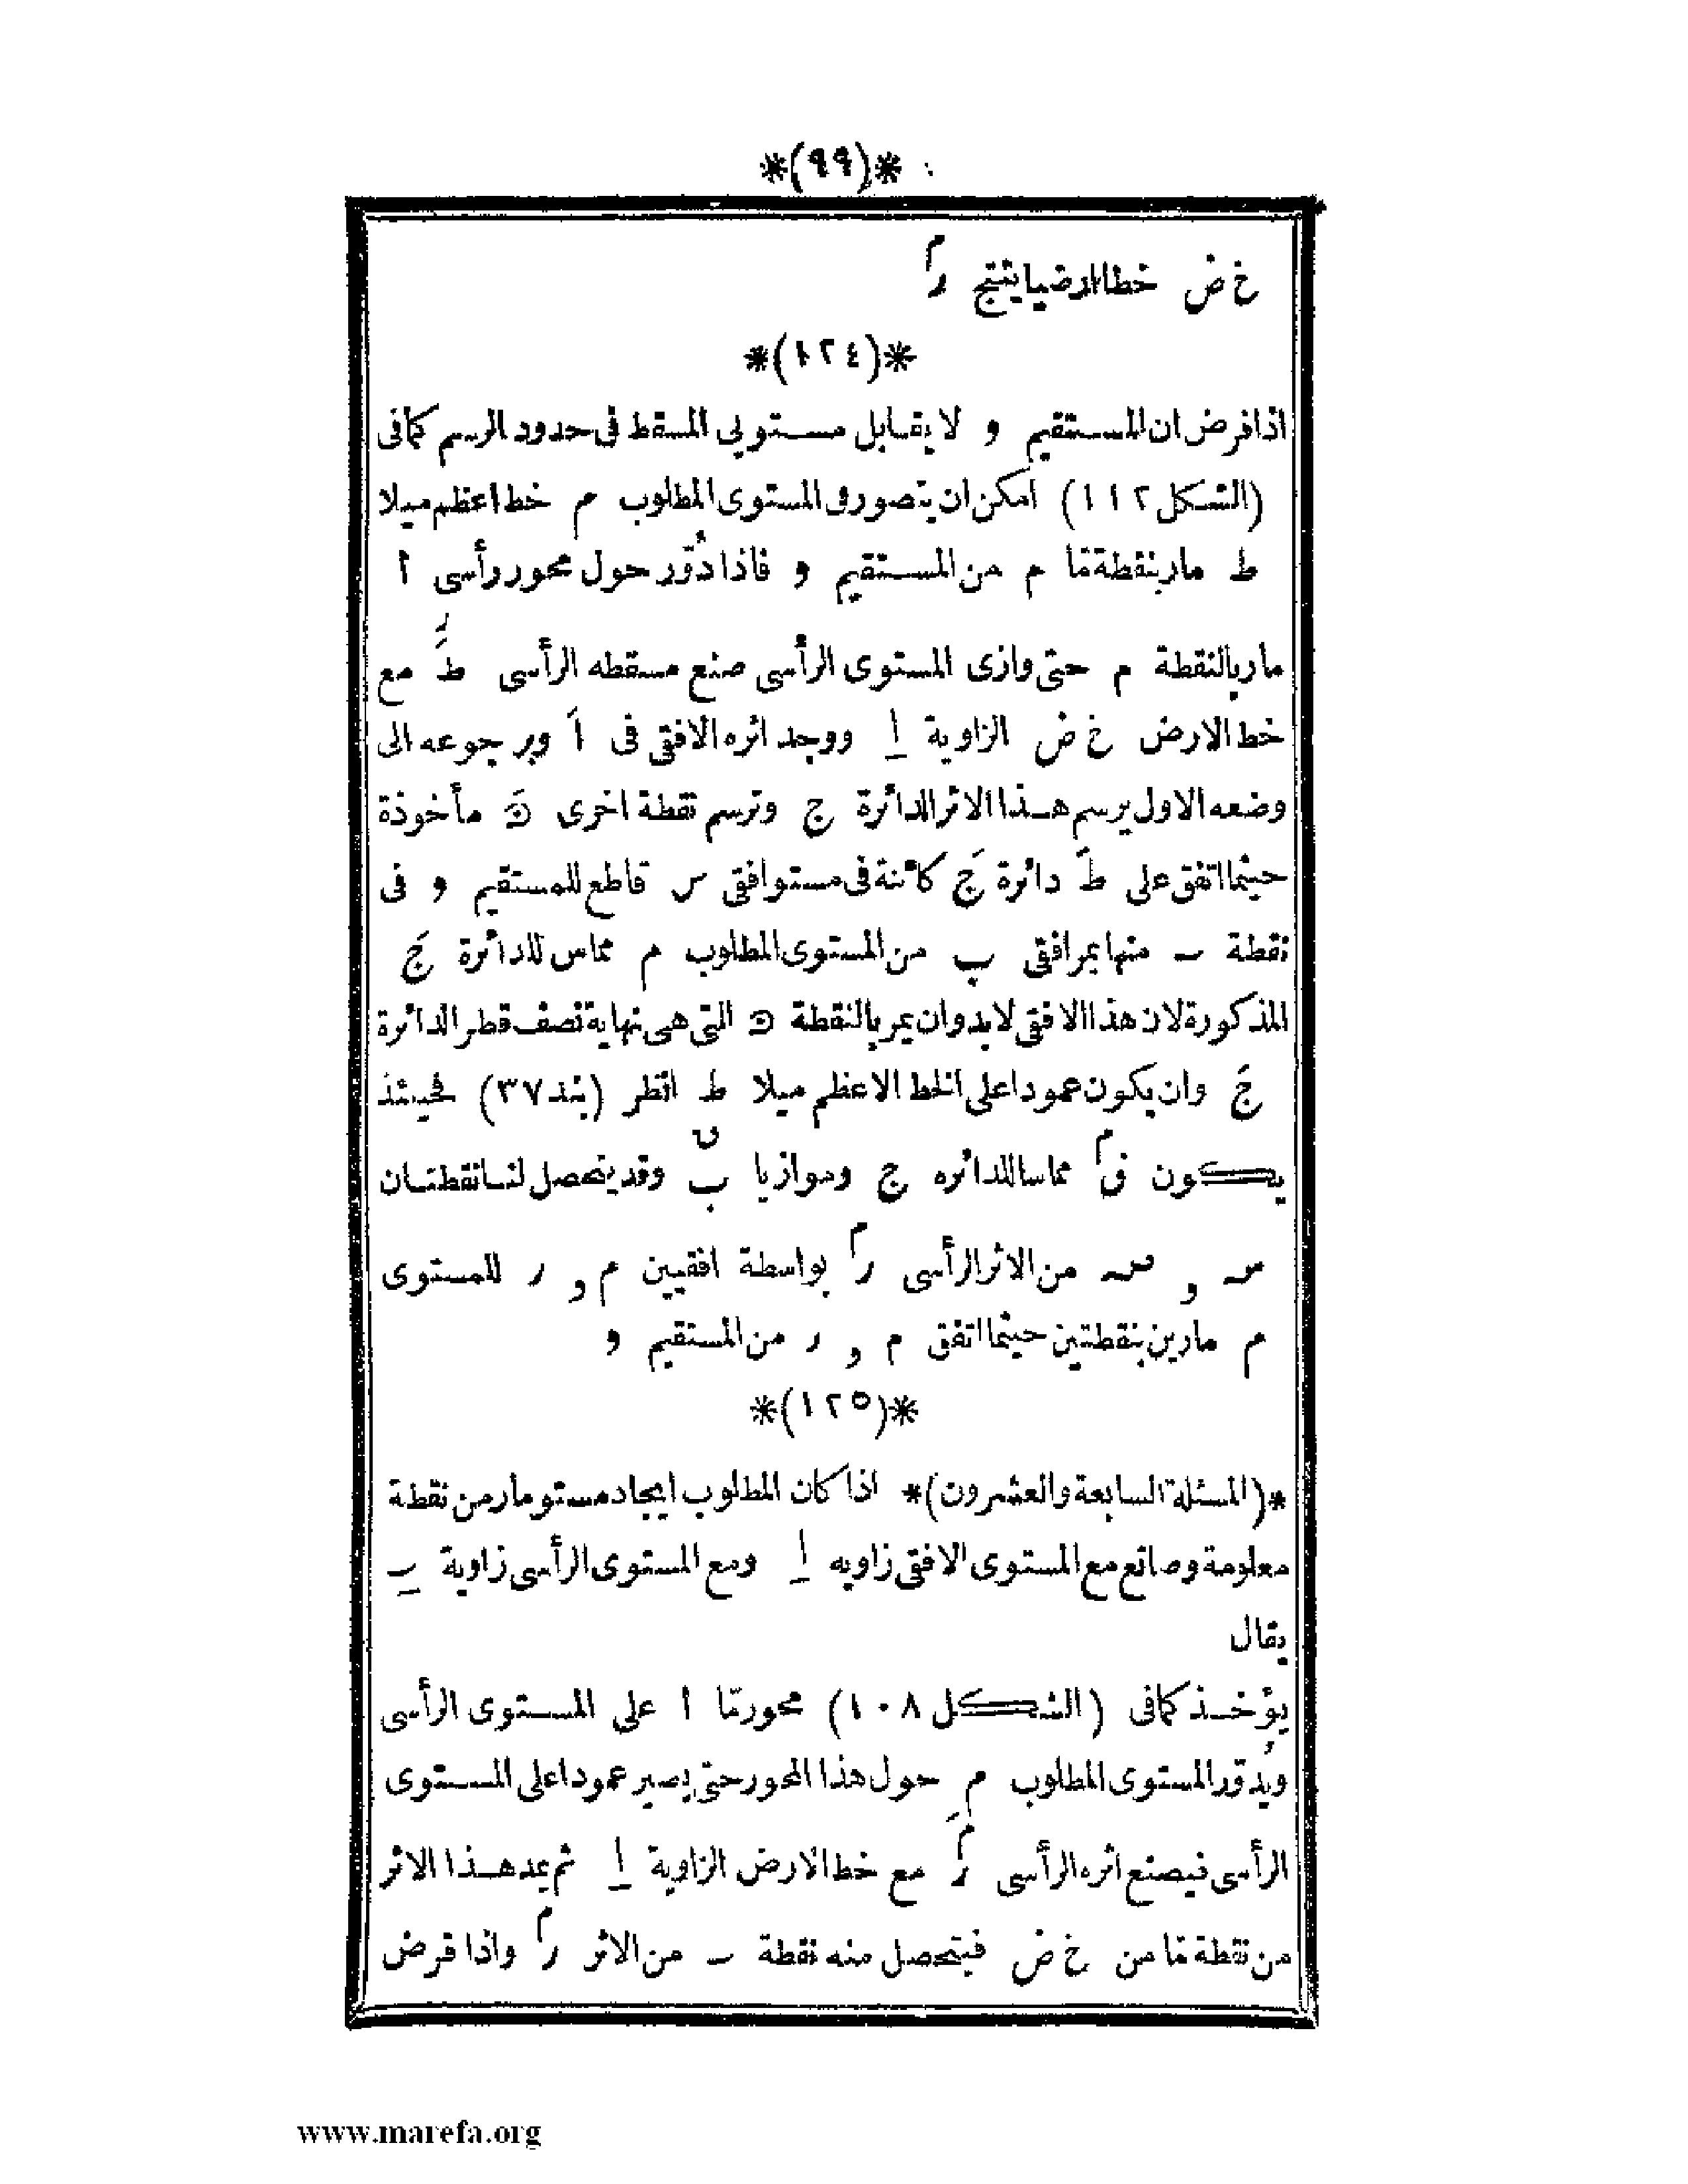 *(٩٩)*
خ ض خطا ارضيا ينتج رم
*(١٢٤)*
اذا فرض ان المستقيم و لا يقابل مستويي المسقط فى حدود الرسم كما فى
(الشكل ١١٢) امكن ان يتصور فى المستوى المطلوب م خط اعظم ميلا
ط مار بنقطة ما م من المستقيم و فاذا دُوّر حول محور رأسى أ
مار بالنقطة م حتى وازى المستوى الرأسى صنع مسقطه الرأسى طَر مع
خط الارض خ ض الزاوية ا ووجد اثره الافقى فى اَ وبرجوعه الى
وضعه الاول يرسم هذا الاثر الدائرة ج وترسم نقطة اخرى مأخوذة
حيثما اتفق على طَ دائرة جَ كائنة فى مستو افقى س قاطع للمستقيم و فى
نقطة ٮ منها يمر افقى ب من المستوى المطلوب م مماس للدائرة جَ
المذكورة لان هذا الافقى لابد وان يمر بالنقطة التى هى نهاية نصف قطر الدائرة
جَ وان يكون عمودا على الخط الاعظم ميلا ط انظر (بند ٣٧) فحينئذ
يكون قم مماسا للدائره ج وموازيا بق وقد يتحصل لنا نقطتان
سـ و صـ من الاثر الرأسى رم بواسطة افقيين م و ر للمستوى
م مارين بنقطتين حيثما اتفق م و ر من المستقيم و
*(١٢٥)*
*(المسئلة السابعة والعشرون)* اذا كان المطلوب ايجاد مستو مار من نقطة
معلومة وصانع مع المستوى الافقى زاويه ا ومع المستوى الرأسى زاوية ٮ
يقال
يؤخذ كما فى (الشكل ١٠٨) محور مّا أ على المستوى الرأسى
ويُدوّر المستوى المطلوب م حول هذا المحور حتى يصير عمودا على المستوى
الرأسى فيصنع اثره الرأسى رَم مع خط الارض الزاوية ا ثم يمد هذا الاثر
من نقطة مّا من خ ض فيتحصل منه نقطة ٮ من الاثر رم واذا فرض
www.marefa.org